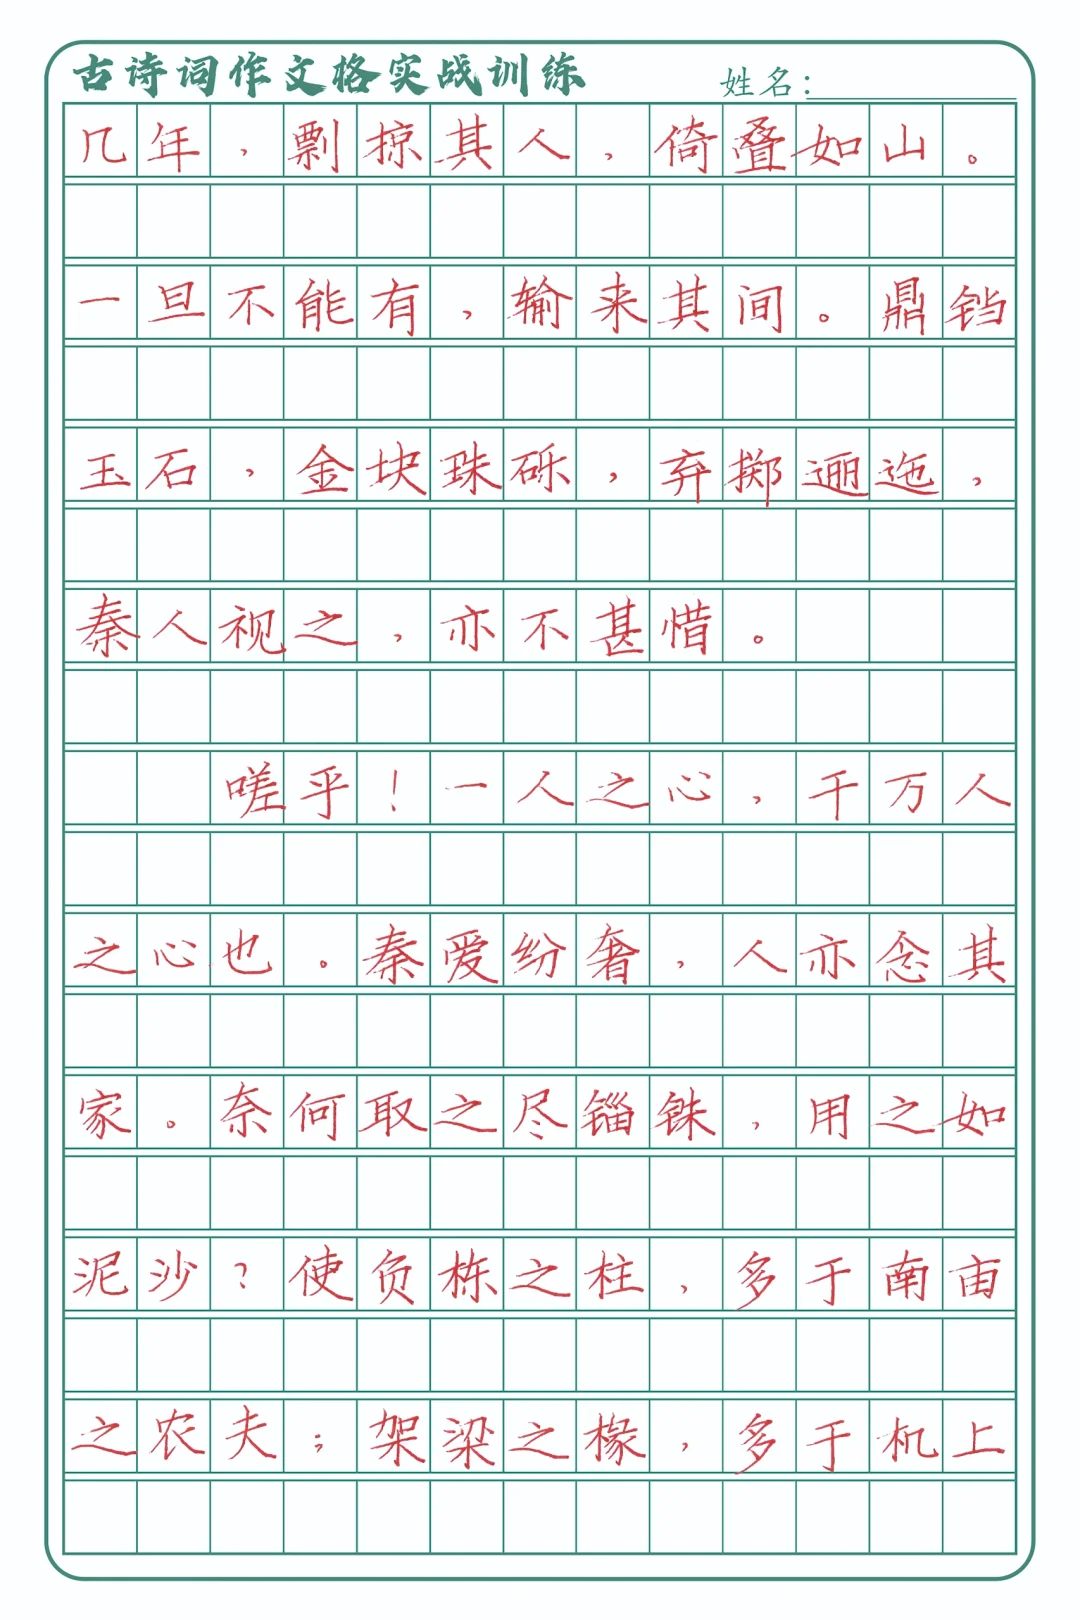 古诗词作文格实战训练
姓名：
几年，剽掠其人，倚叠如山。
一旦不能有，输来其间。鼎铛
玉石，金块珠砾，弃掷逦迤，
秦人视之，亦不甚惜。
嗟乎！一人之心，千万人
之心也。秦爱纷奢，人亦念其
家。奈何取之尽锱铢，用之如
泥沙？使负栋之柱，多于南亩
之农夫；架梁之椽，多于机上